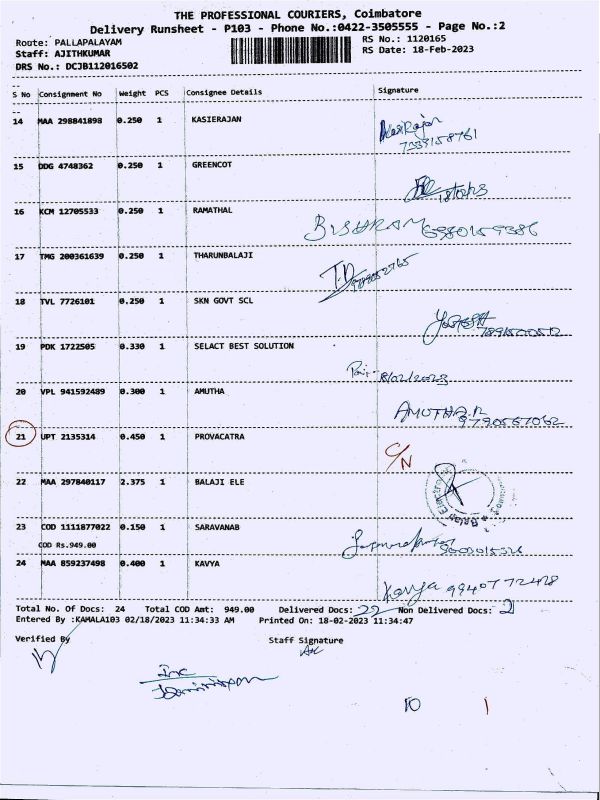 THE PROFESSIONAL COURIERS, Coimbatore
Delivery Runsheet - P103 - Phone No.:0422-3505555 - Page No.:2
Route: PALLAPALAYAM
RS No.: 1120165
Staff: AJITHKUMAR
RS Date: 18-Feb-2023
DRS No.: DCJB112016502
S No Consignment No Weight PCS Consignee Details Signature
14 MAA 298841898 0.250 1 KASIERAJAN KasiRajan
15 DDG 4748362 0.250 1 GREENCOT
16 KCM 12705533 0.250 1 RAMATHAL
17 TMG 200361639 0.250 1 THARUNBALAJI
18 TVL 7726101 0.250 1 SKN GOVT SCL
19 PDK 1722505 0.330 1 SELACT BEST SOLUTION 18/02/2023
20 VPL 941592489 0.300 1 AMUTHA AMUTHA.R
21 UPT 2135314 0.450 1 PROVACATRA C/N
22 MAA 297840117 2.375 1 BALAJI ELE
23 COD 1111877022 0.150 1 SARAVANAB
COD Rs.949.00
24 MAA 859237498 0.400 1 KAVYA Kavya 9940772428
Total No. Of Docs: 24 Total COD Amt: 949.00 Delivered Docs: 22 Non Delivered Docs: 2
Entered By :KAMALA103 02/18/2023 11:34:33 AM Printed On: 18-02-2023 11:34:47
Verified By Staff Signature
10 1